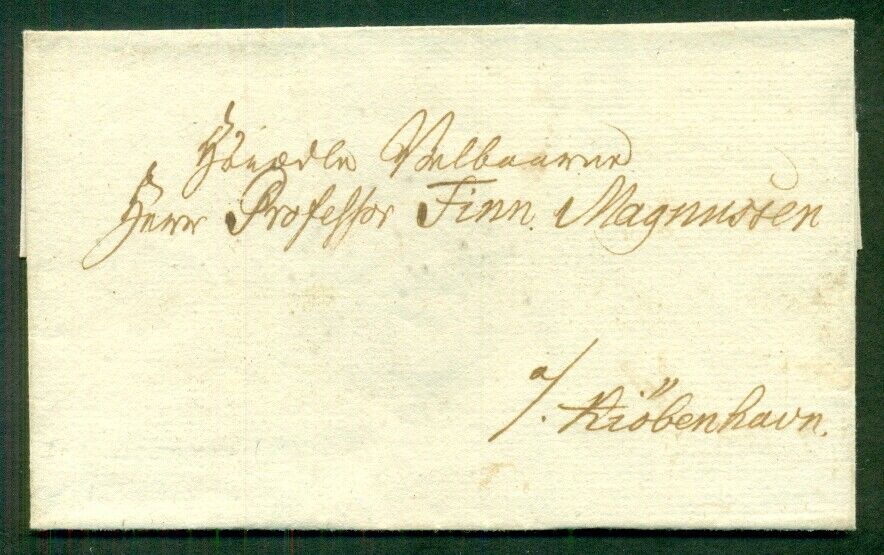 Höiædle Velbaarne
Herr Professor Finn Magnussen
a/. Kiöbenhavn.